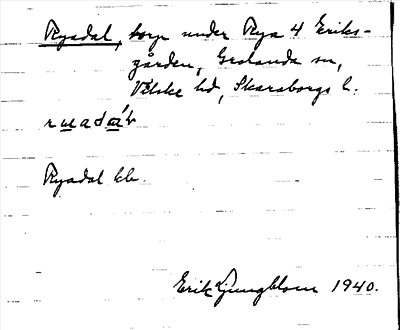 Ryadal, torp under Rya 4 Eriks-
gården, Grolanda sn,
Vilske hd, Skaraborgs l.
Ryadal kb.
Erik Ljungblom 1940.